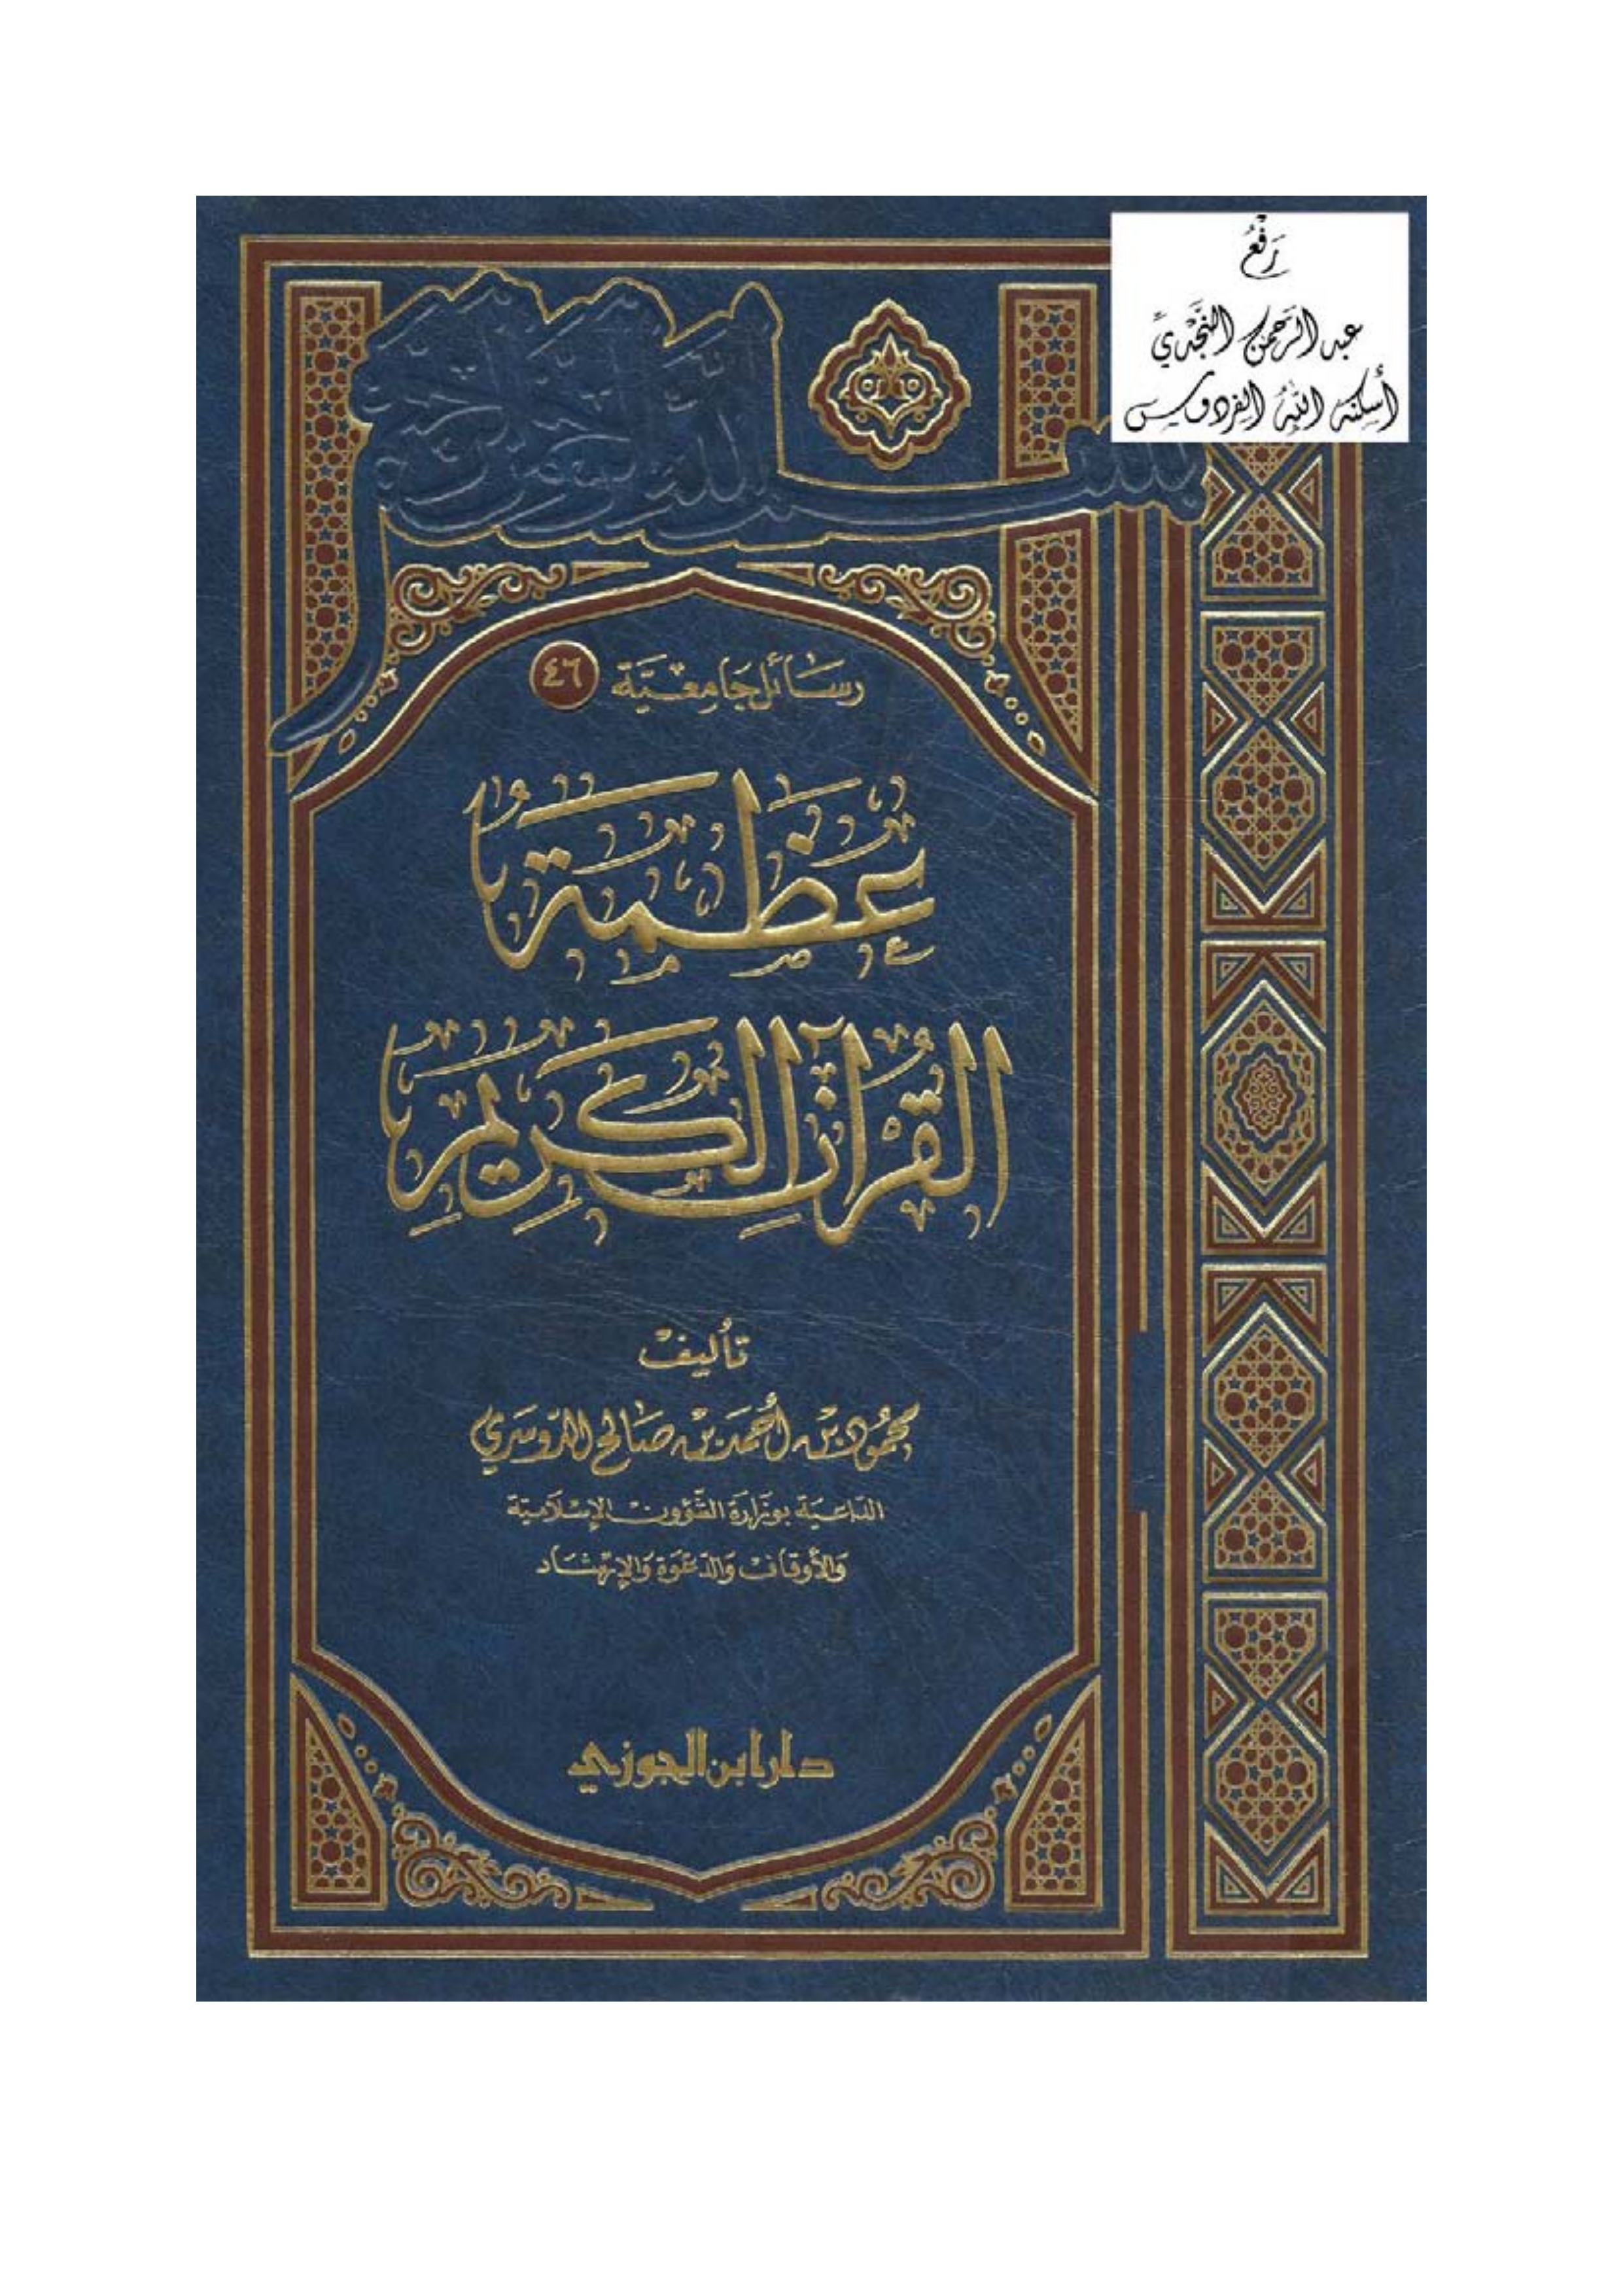 رفع
عبد الرحمن النجدي
أسكنه الله الفردوس
بسم الله الرحمن الرحيم
رسائل جامعية ٤٦
عظمة
القرآن الكريم
تأليف
محمود بن أحمد بن صالح الدوسري
الداعية بوزارة الشؤون الإسلامية
والأوقاف والدعوة والإرشاد
دار ابن الجوزي